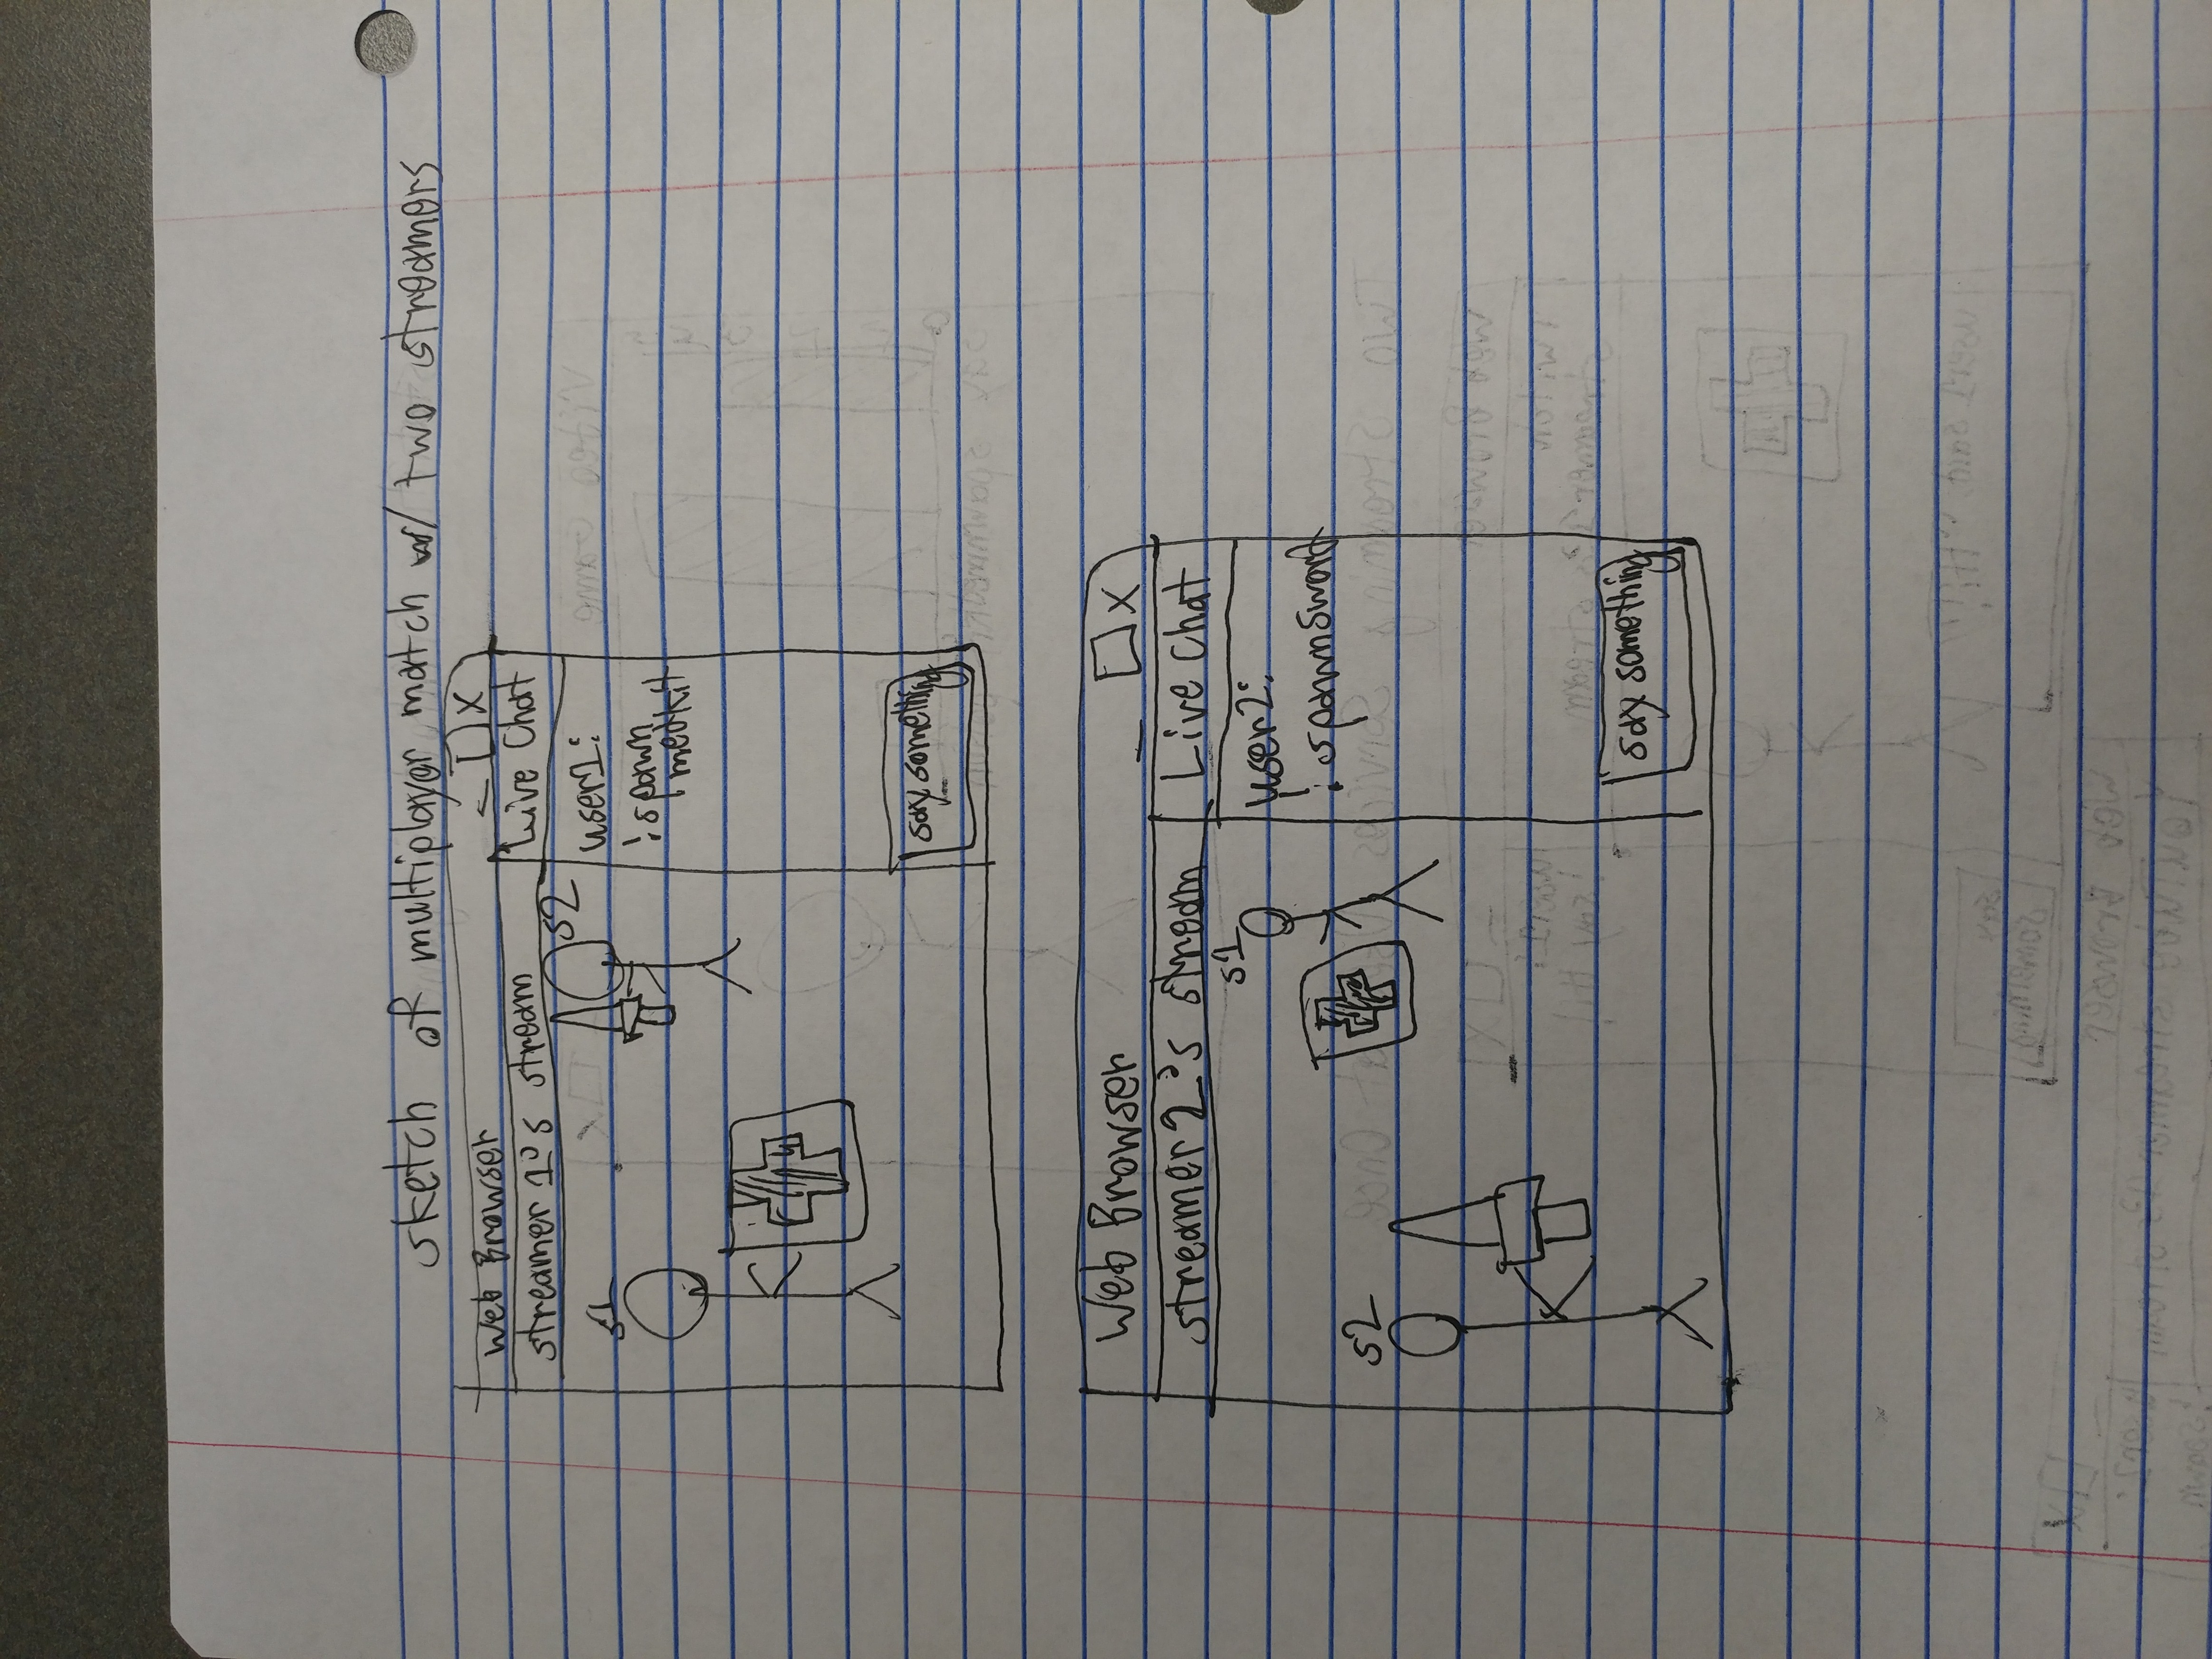 sketch of multiplayer match w/ two streamers
Web Browser - □ X
streamer 1's stream
Live Chat
S1
S2
user1:
!spawn
medkit
say something
Web Browser - □ X
streamer 2's stream
Live Chat
S1
S2
user2:
!spawnsword
say something